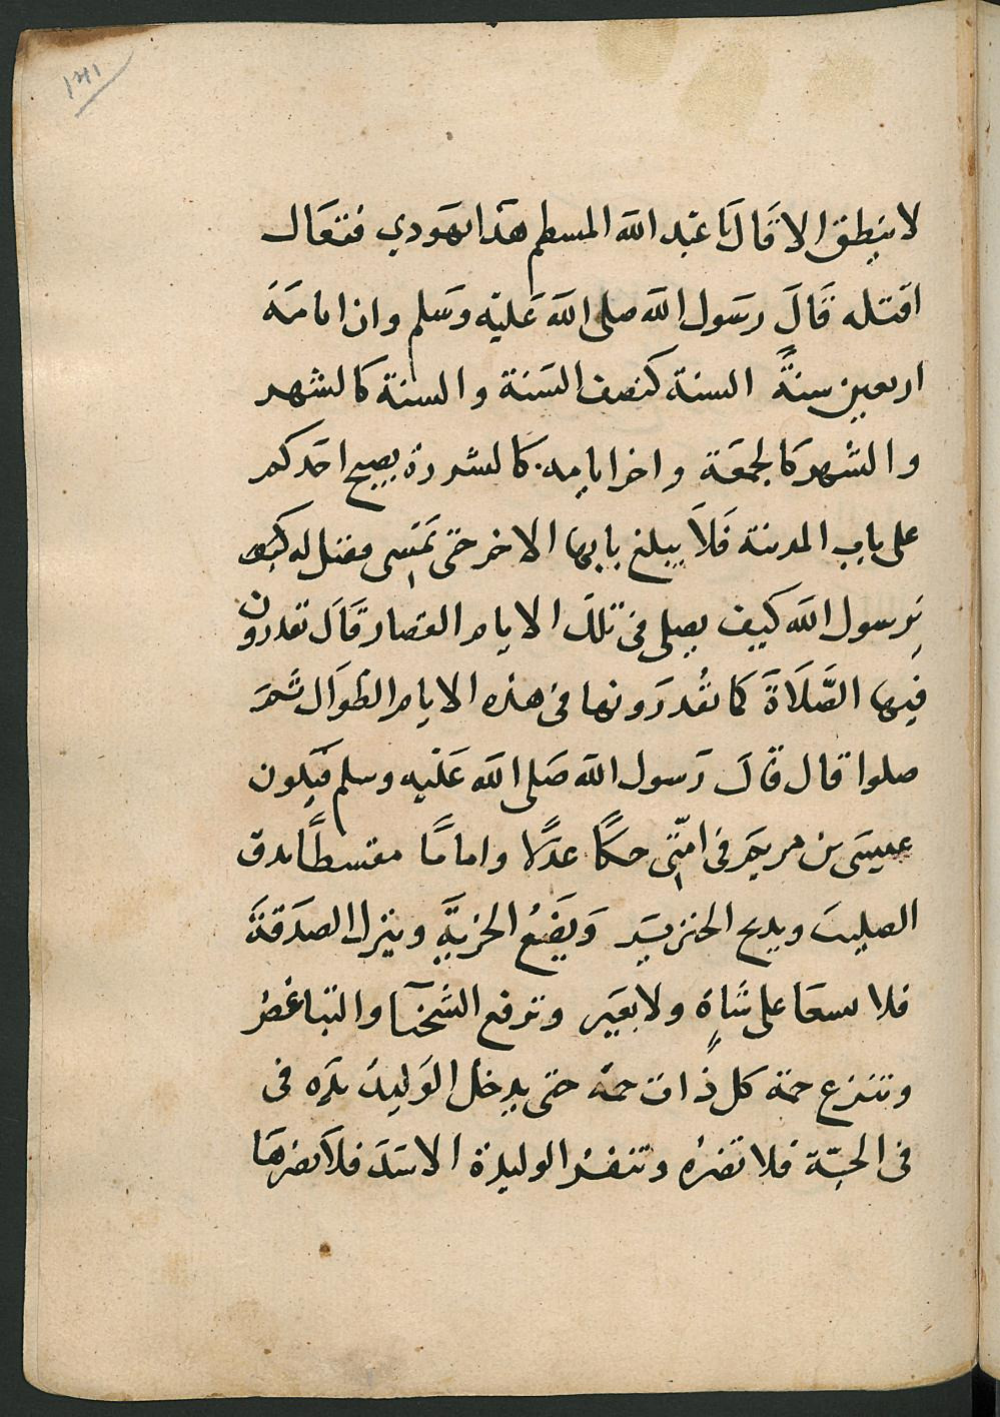 ١٣١
لا ينطق الا قال يا عبد الله المسلم هذا يهودي فتعال
اقتله قَالَ رسَول الله صلى الله عَليه وَسلم وان ايامَهُ
اربعين سنةً السنة كنصف السَنة والسنة كالشهر
والشهر كالجمعَة واخر ايامه كالشررة يصبح احَدكم
على باب المدينة فَلاَ يبلغ بابها الاخر حتى يمَسِى فقيل له كيف
يرسول الله كيف يصلى فى تلكَ الايام القصار قَالَ تقدرون
فيها الصَّلاَةَ كما تقُدرَونها فى هذه الايام الطوَال ثمَ
صلوا قال قالَ رَسول الله صَلى الله عَليه وسلم فيَكون
عيسَى بن مريمَ فى امتّى حكمًا عدلًا واماما مقسطًا يدق
الصليبَ ويذبح الخنزيَر وَيضَعُ الجزيةَ ويترك الصدَقةَ
فلا يسعَا على شَاةٍ ولا بعيَر وترفع الشَحنآ والتباغضُ
وتنزع حمة كل ذات حمة حتى يدخل الوَليدُ يدَه فى
فى الحيّة فلا تضرُه وتنفر الوليدة الاسَدَ فلاَ يضرهَا